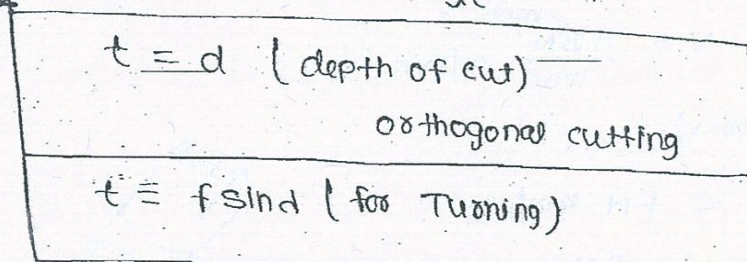 t = d (depth of cut)
orthogonal cutting
t = f sind (for Turning)